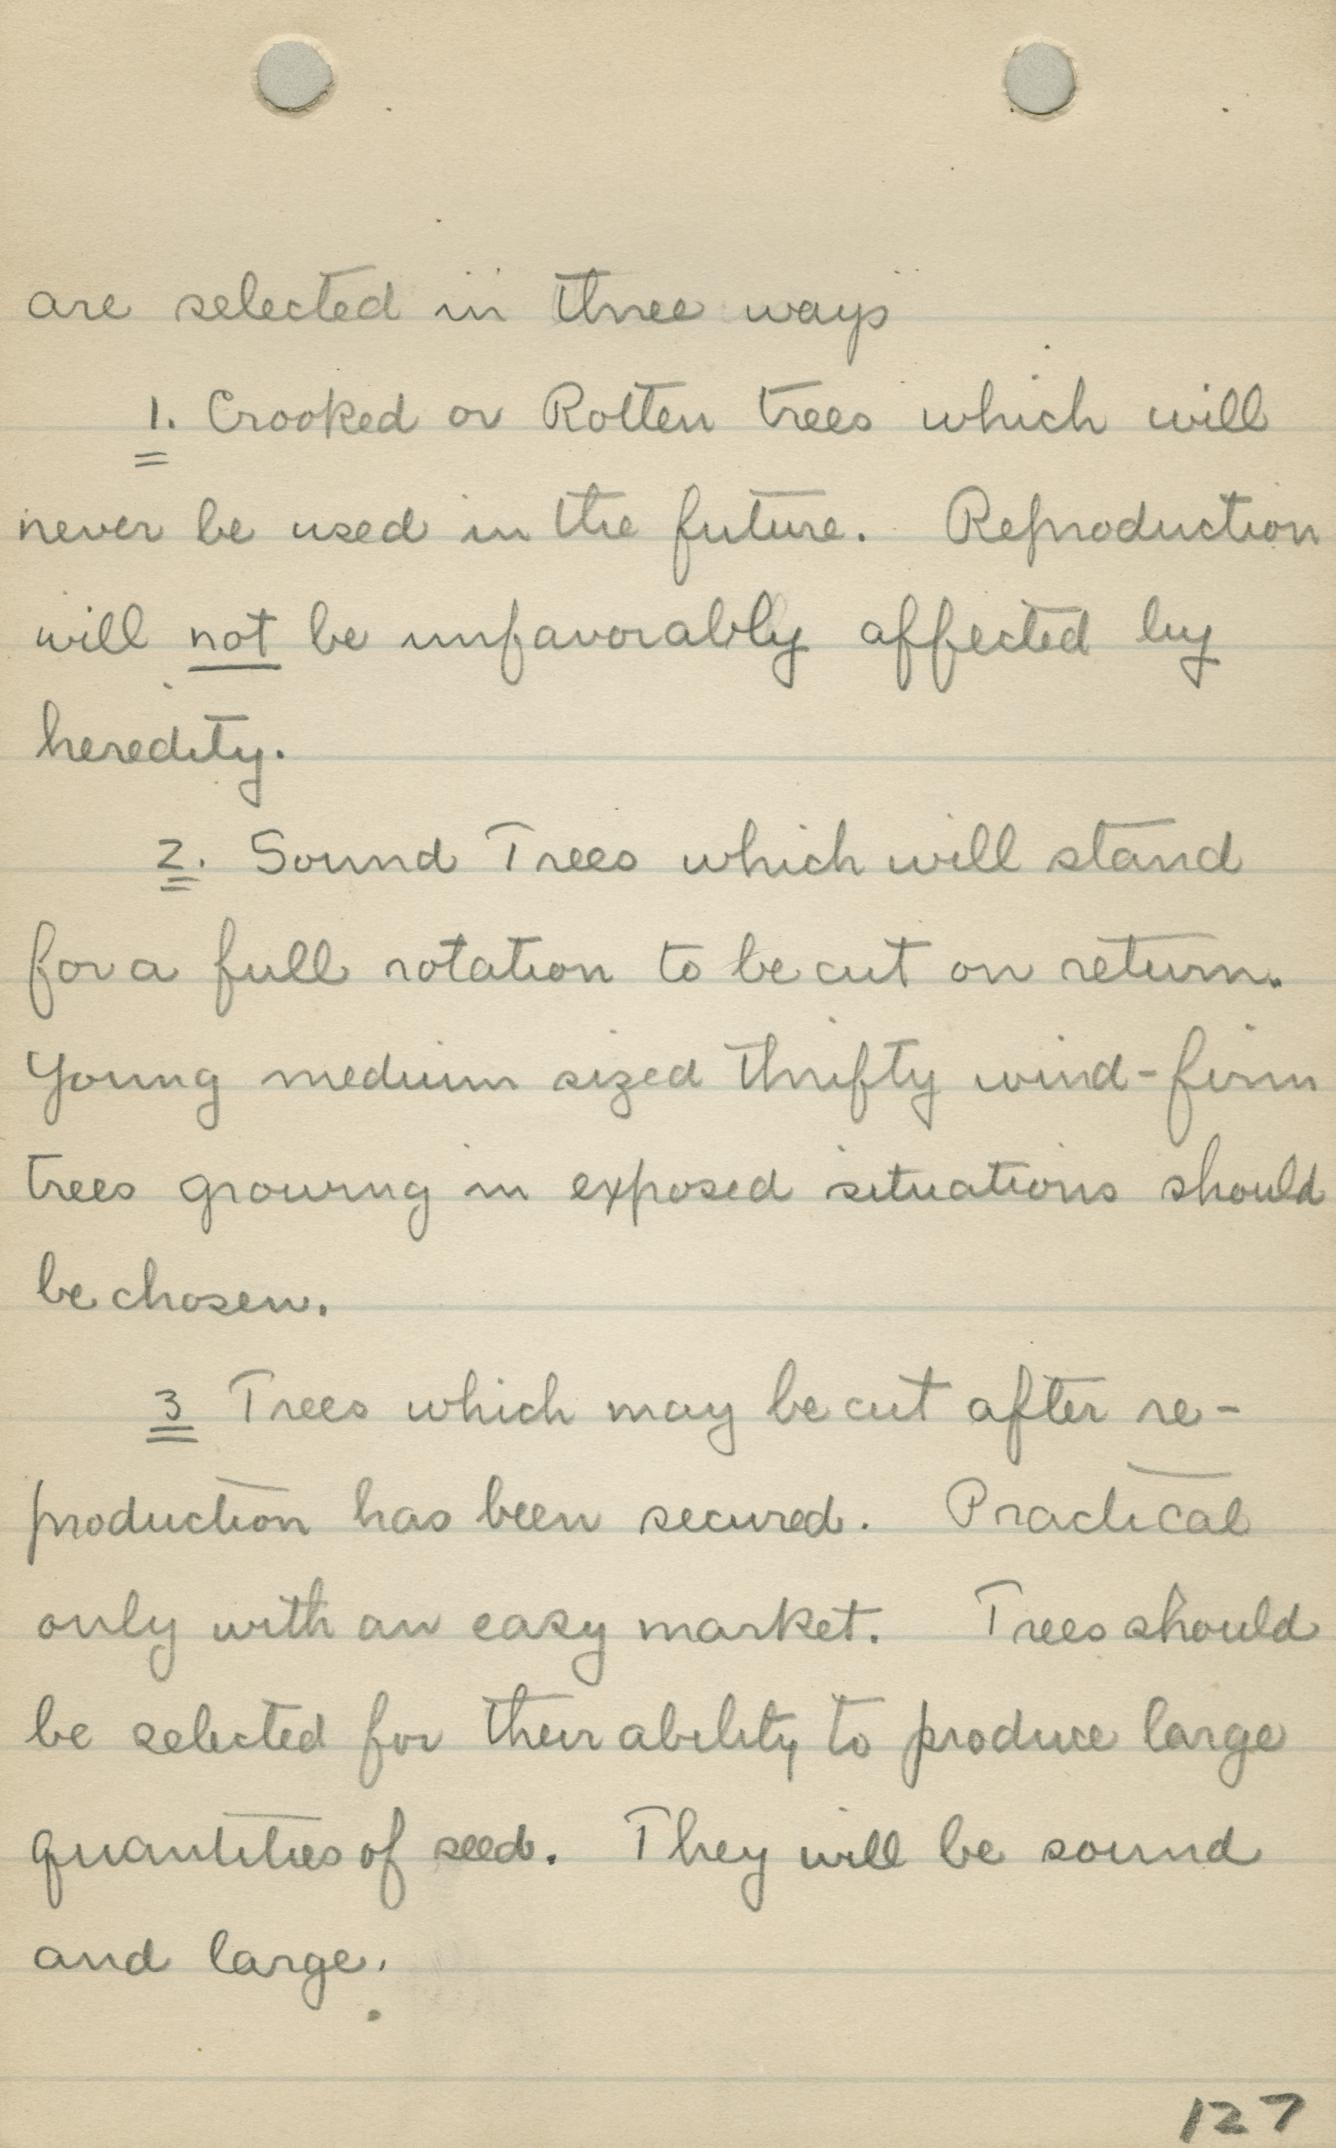 are selected in three ways
1. Crooked or Rotten trees which will
never be used in the future. Reproduction
will not be unfavorably affected by
heredity.
2. Sound Trees which will stand
for a full rotation to be cut on return.
Young medium sized thrifty wind-firm
trees growing in exposed situations should
be chosen.
3 Trees which may be cut after re-
production has been secured. Practical
only with an easy market. Trees should
be selected for their ability to produce large
quantities of seed. They will be sound
and large.
127